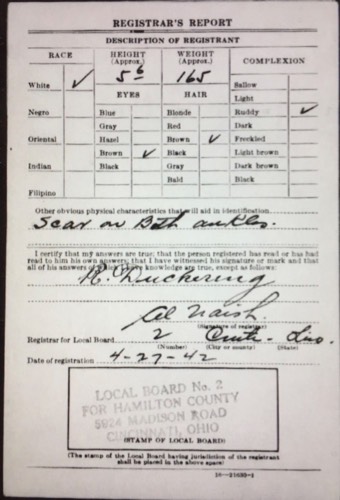 REGISTRAR'S REPORT
DESCRIPTION OF REGISTRANT
RACE HEIGHT (Approx.) WEIGHT (Approx.) COMPLEXION
5 6 165
White ✓ Sallow
Light
EYES HAIR
Negro Blue Blonde Ruddy ✓
Gray Red Dark
Oriental Hazel Brown ✓ Freckled
Brown ✓ Black Light brown
Indian Black Gray Dark brown
Bald Black
Filipino
Other obvious physical characteristics that will aid in identification
Scar on Both ankles.
I certify that my answers are true; that the person registered has read or has had
read to him his own answers; that I have witnessed his signature or mark and that
all of his answers of which I have knowledge are true, except as follows:
R. Duckering
Al Naish
(Signature of registrar)
Registrar for Local Board 2
(Number) (City or county) (State)
Date of registration 4-27-42
LOCAL BOARD No. 2
FOR HAMILTON COUNTY
5924 MADISON ROAD
CINCINNATI, OHIO
(STAMP OF LOCAL BOARD)
(The stamp of the Local Board having jurisdiction of the registrant
shall be placed in the above space)